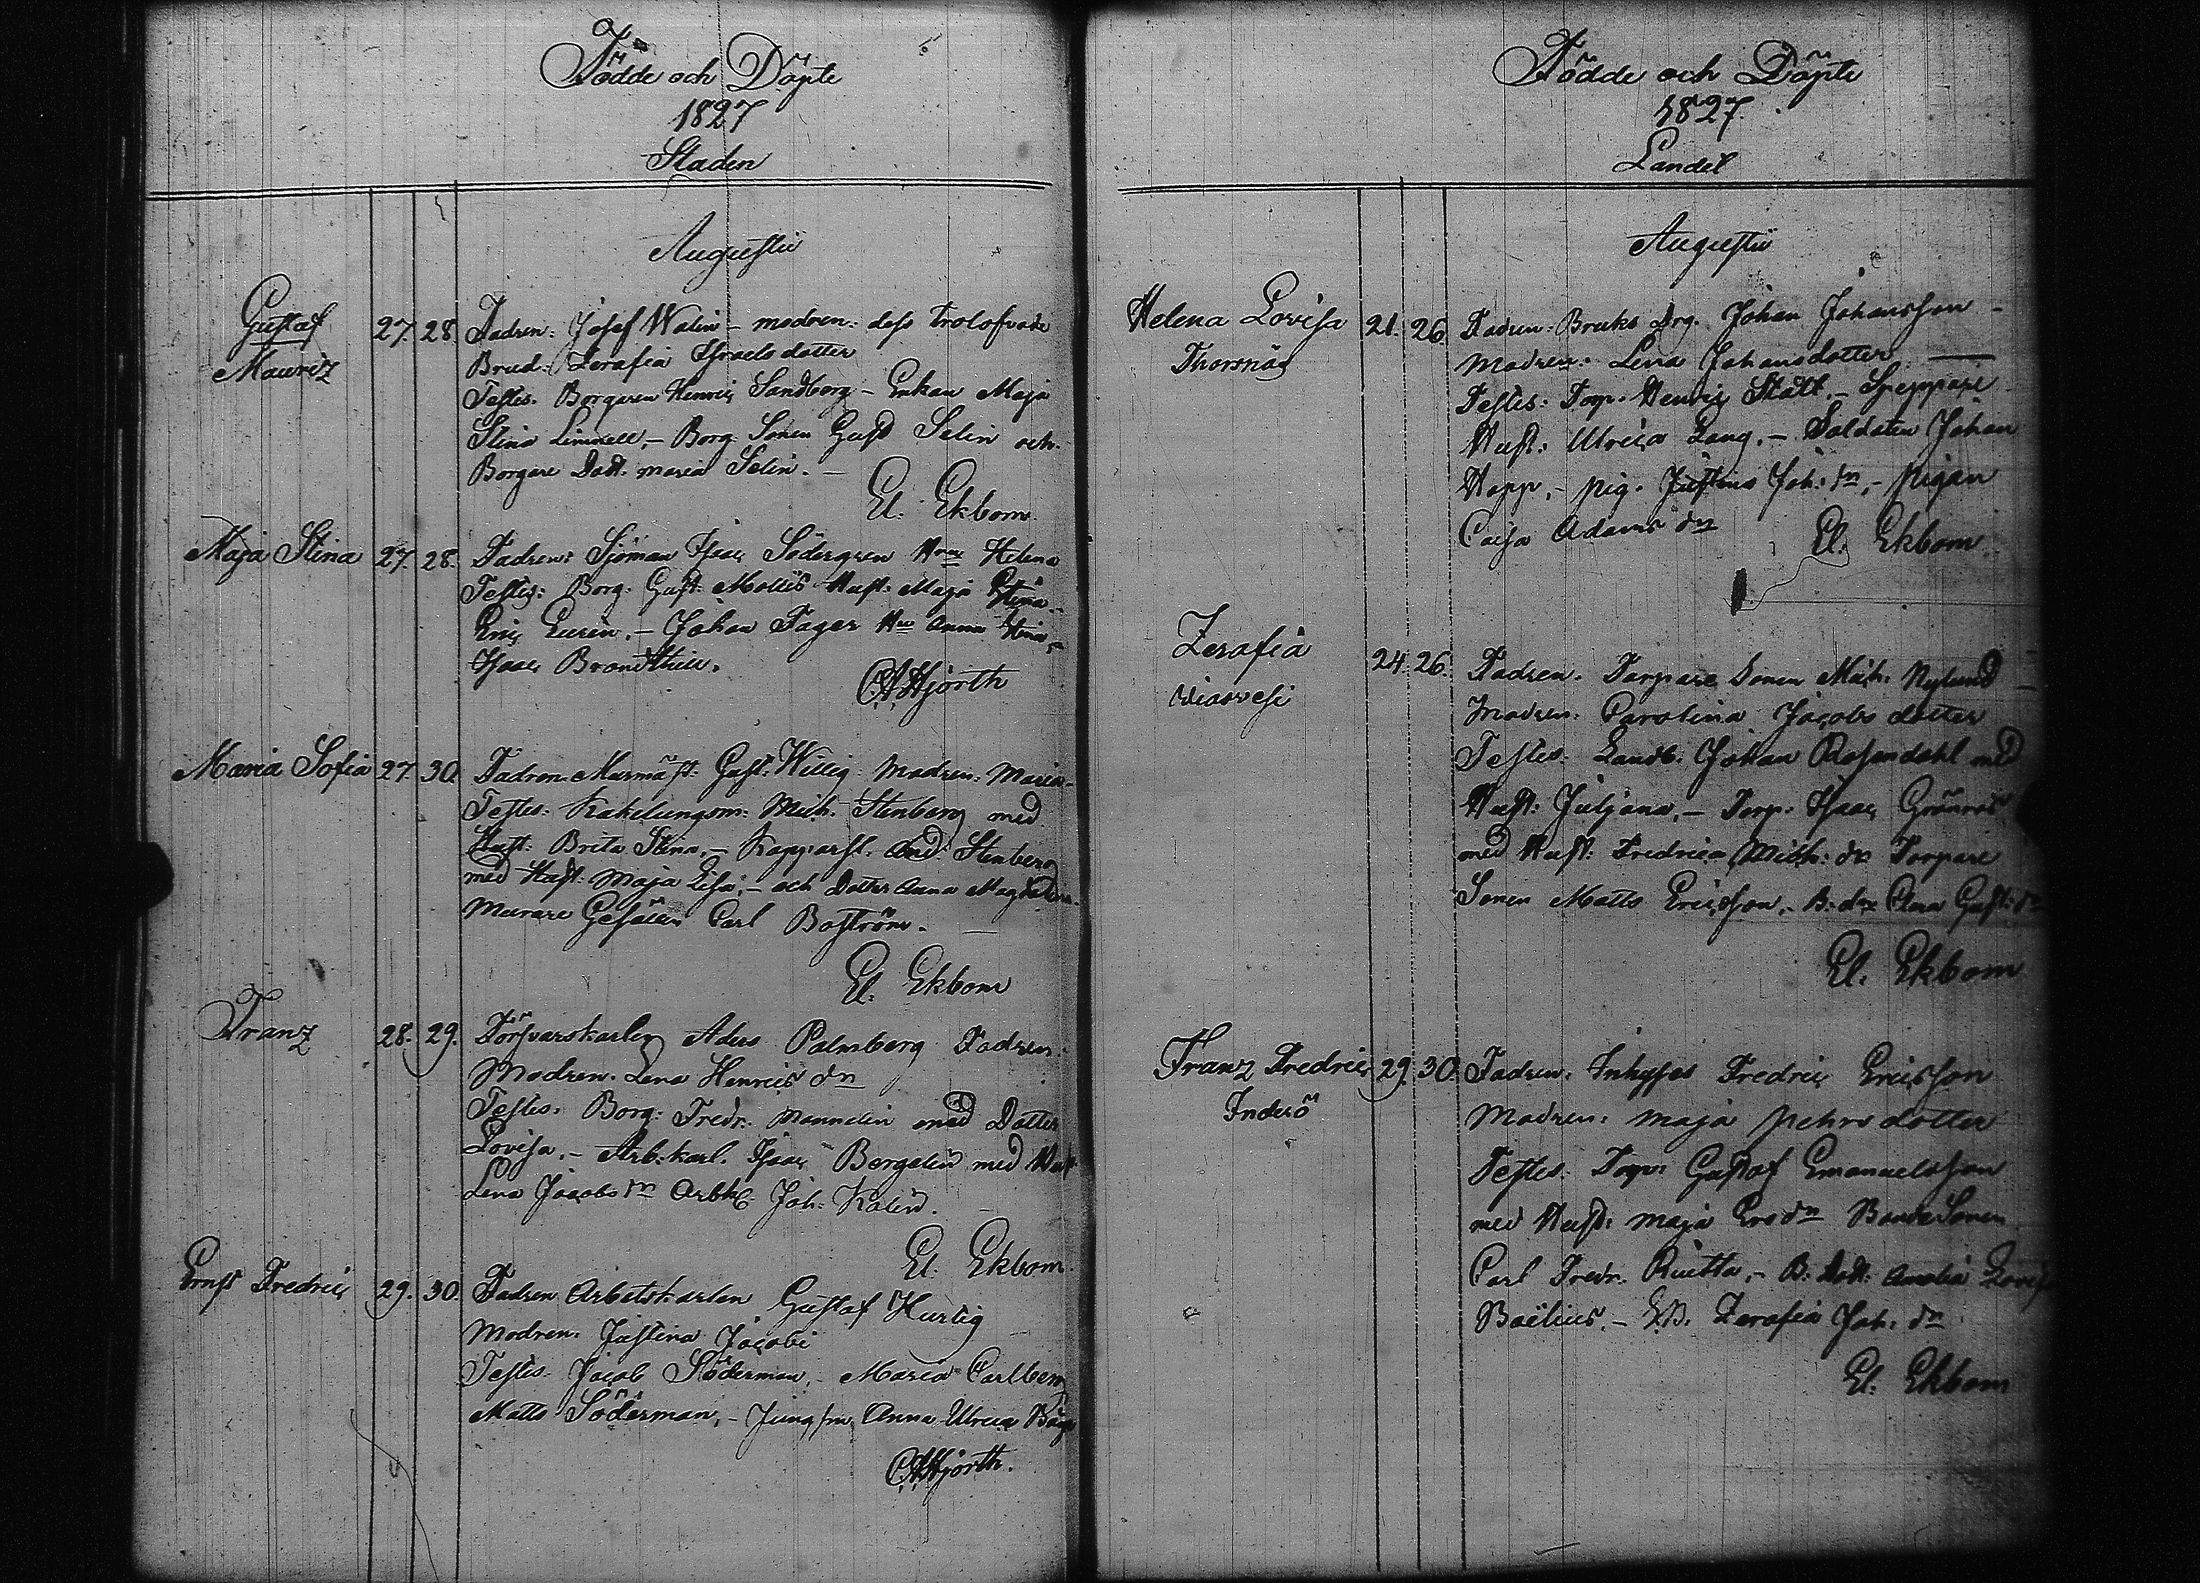 Födde och Döpte
1827
Staden
Augusti
Gustaf
Mauritz
27. 28.
Fadren: Josef Walin – modren: dess trolofvade
Brud: Serafia Israelsdotter
Testes: Borgaren Henric Sandberg – Enkan Maja
Stina Limnell, – Borg. Sonen Gust Selin och
Borgare Dott. maria Selin. –
El. Ekbom
Maja Stina 27. 28.
Fadren: Sjöman Isac Södergren Hu Helena
Testes: Borg: Gust: Mollis Hust: Maja Stina –
Eric Eurén. – Johan Fager Hu Anna Stina –
Isaac
C.A. Hjorth
Maria Sofia 27. 30.
Fadren Murmäst: Gust: Willig Modren: Maria –
Testes: Kakelungsm: Mich: Stenberg med
Hust: Brita Stina, – Kopparsl. And: Stenberg
med Hust: Maja Lisa, – och dotter Anna Magdalena.
Murare Gesällen Carl Boström. –
El. Ekbom
Franz 28. 29.
Försvarskarlen Aders Palmberg Fadren.
Modren. Lena Henrics dn
Testes: Borg: Fredr. Mannelin med Dotter
Lovisa. – Arb:karl. Isaac Bergelin med Hust
Lena Jacobs dn Arbk: Joh: Kalin.
El. Ekbom
Ernst Fredric 29. 30.
Fadren Arbetskarlen Gustaf Hurtig
Modren: Justina Jacobi
Testes. Jacob Söderman, – Maria Carlberg
Matts Söderman, – Jungfru Anna Ulrica
C.A. Hjorth.
Födde och Döpte
1827.
Landet
Augusti
Helena Lovisa
Thorsnäs
21. 26.
Fadren: Bruks Drg. Johan Johansson –
Modren: Lena Johansdotter. –
Testes: Torp. Henric Stält. – Skeppare
Hust: Ulrica Lang. – Soldaten Johan
Hopp, – pig. Justina Joh: dn, – pigan
Caisa Adams dn
El. Ekbom
Zerafia
Viasvesi
24. 26.
Fadren. Torpare Sonen Mich: Nylund –
Modren: Carolina Jacobs dotter
Testes. Landb. Johan Rosendahl med
Hust: Juljana, – Torp: Isaac Grönroos
med Hust: Fredrica Mich: dn Torpare
Sonen Matts Ericsson, – B:dn Gust: dn
El. Ekbom
Franz Fredric
Inderö
29. 30.
Fadren: Inhyses Fredric Ericsson
Modren: Maja Pehrs dotter
Testes: Torp: Gustaf Emanuelsson
med Hust: Maja Ersdn Bonde Sonen
Carl Fredr. Ruitta, – B: Dott: Amalia Lovisa
Boëlius. – Zerafia Joh: dn
El. Ekbom